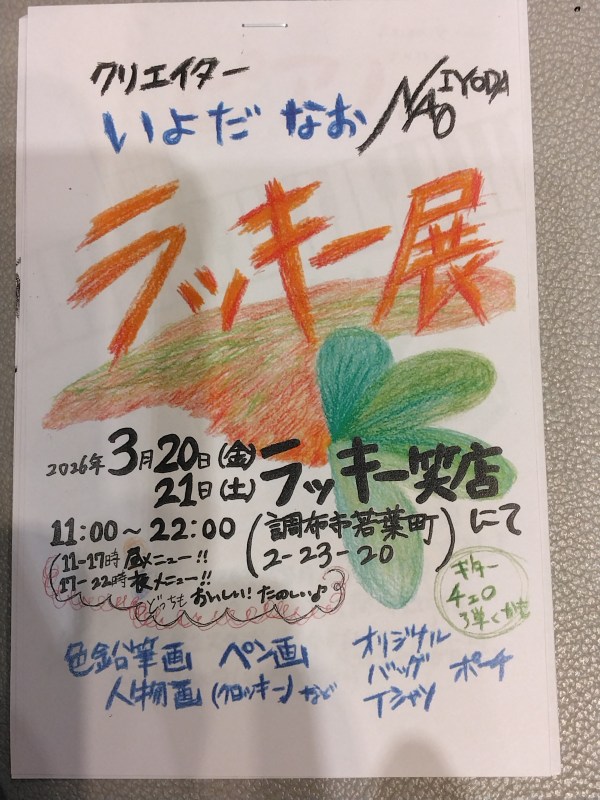 クリエイター
いよだ なお NAO IYODA
ラッキー展
2026年 3月20日(金)
21日(土)
ラッキー笑店
11:00～22:00 (調布市若葉町 2-23-20) にて
(11-17時 昼メニュー!!
17-22時 夜メニュー!!
どっちも おいしい! たのしい♪
ギター
チェロ
弾くかも
色鉛筆画 ペン画
人物画 (クロッキー) など
オリジナル
バッグ ポーチ
Tシャツ